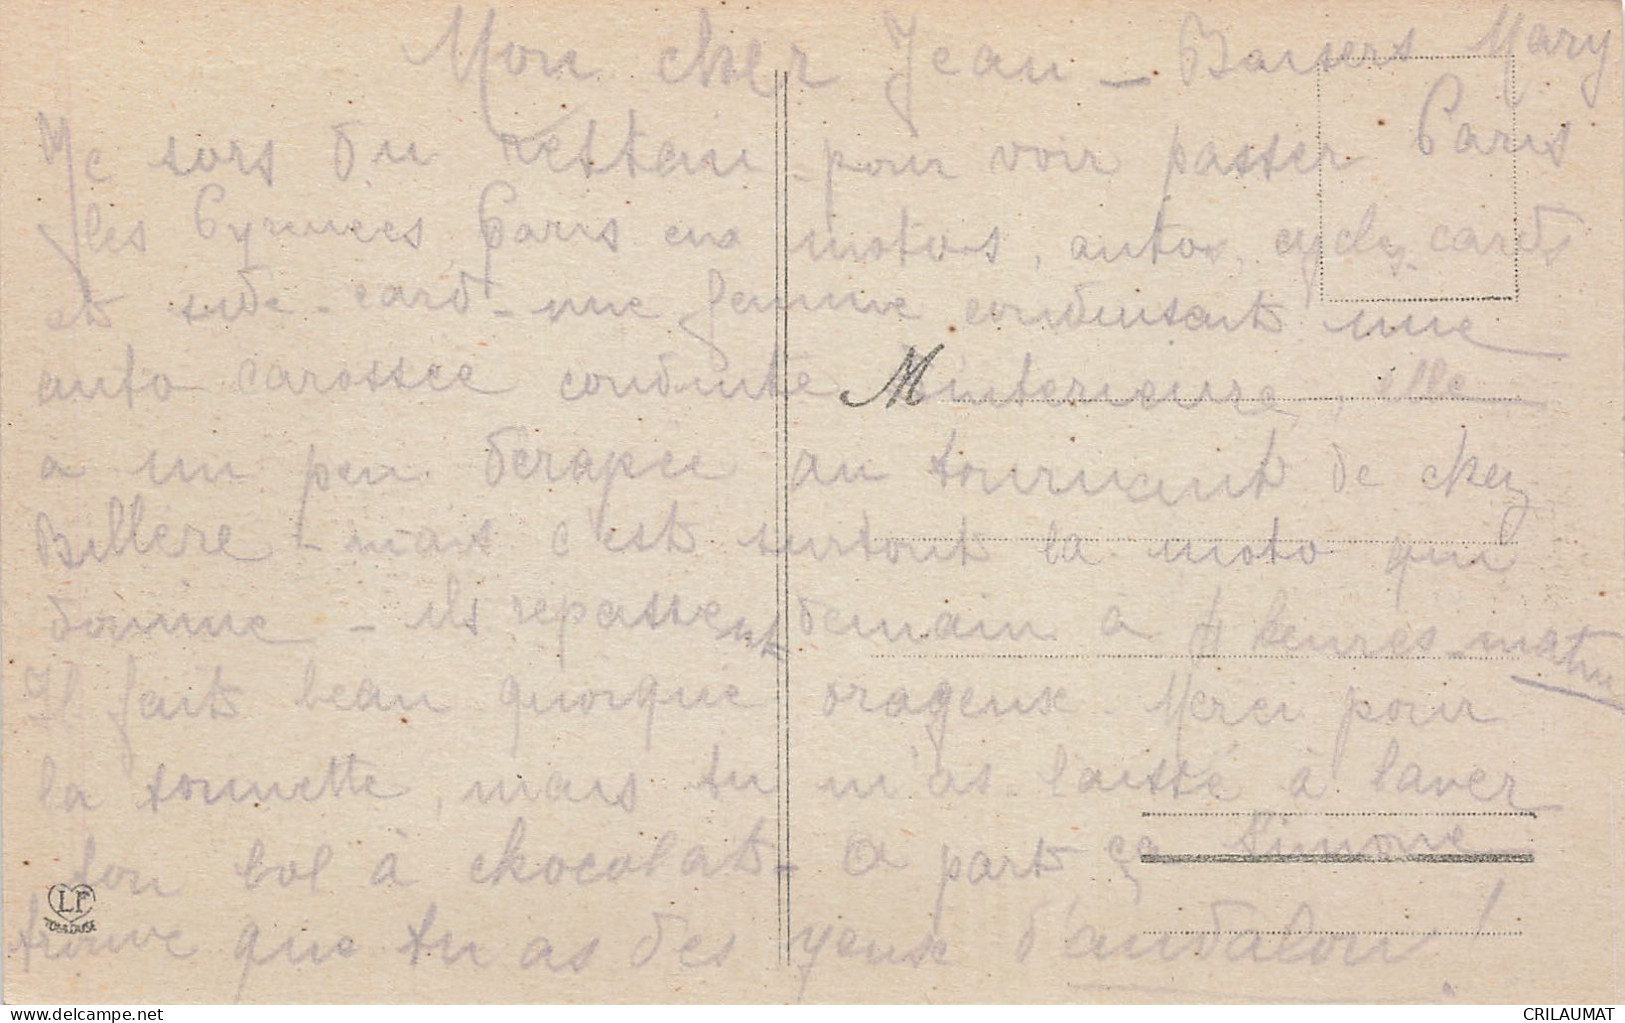 Mon cher Jean - Baisers Mary
Je sors du restau - pour voir passer Paris
les Pyrenées Paris en motos, autos, cycles cards
et side-card - une femme conduisait une
auto carossée conduite M interieure, elle
a un peu dérapée au tournant de chez
Billère - mais c'est surtout la moto qui
donne - ils repassent demain à 4 heures matin
Il fait beau quoique orageux. Merci pour
la sonnette, mais tu m'as laissé à laver
ton bol à chocolat - a part ça Simone
LF
TOULOUSE
trouve que tu as des yeux d'andalou !
CRILAUMAT
delcampe.net